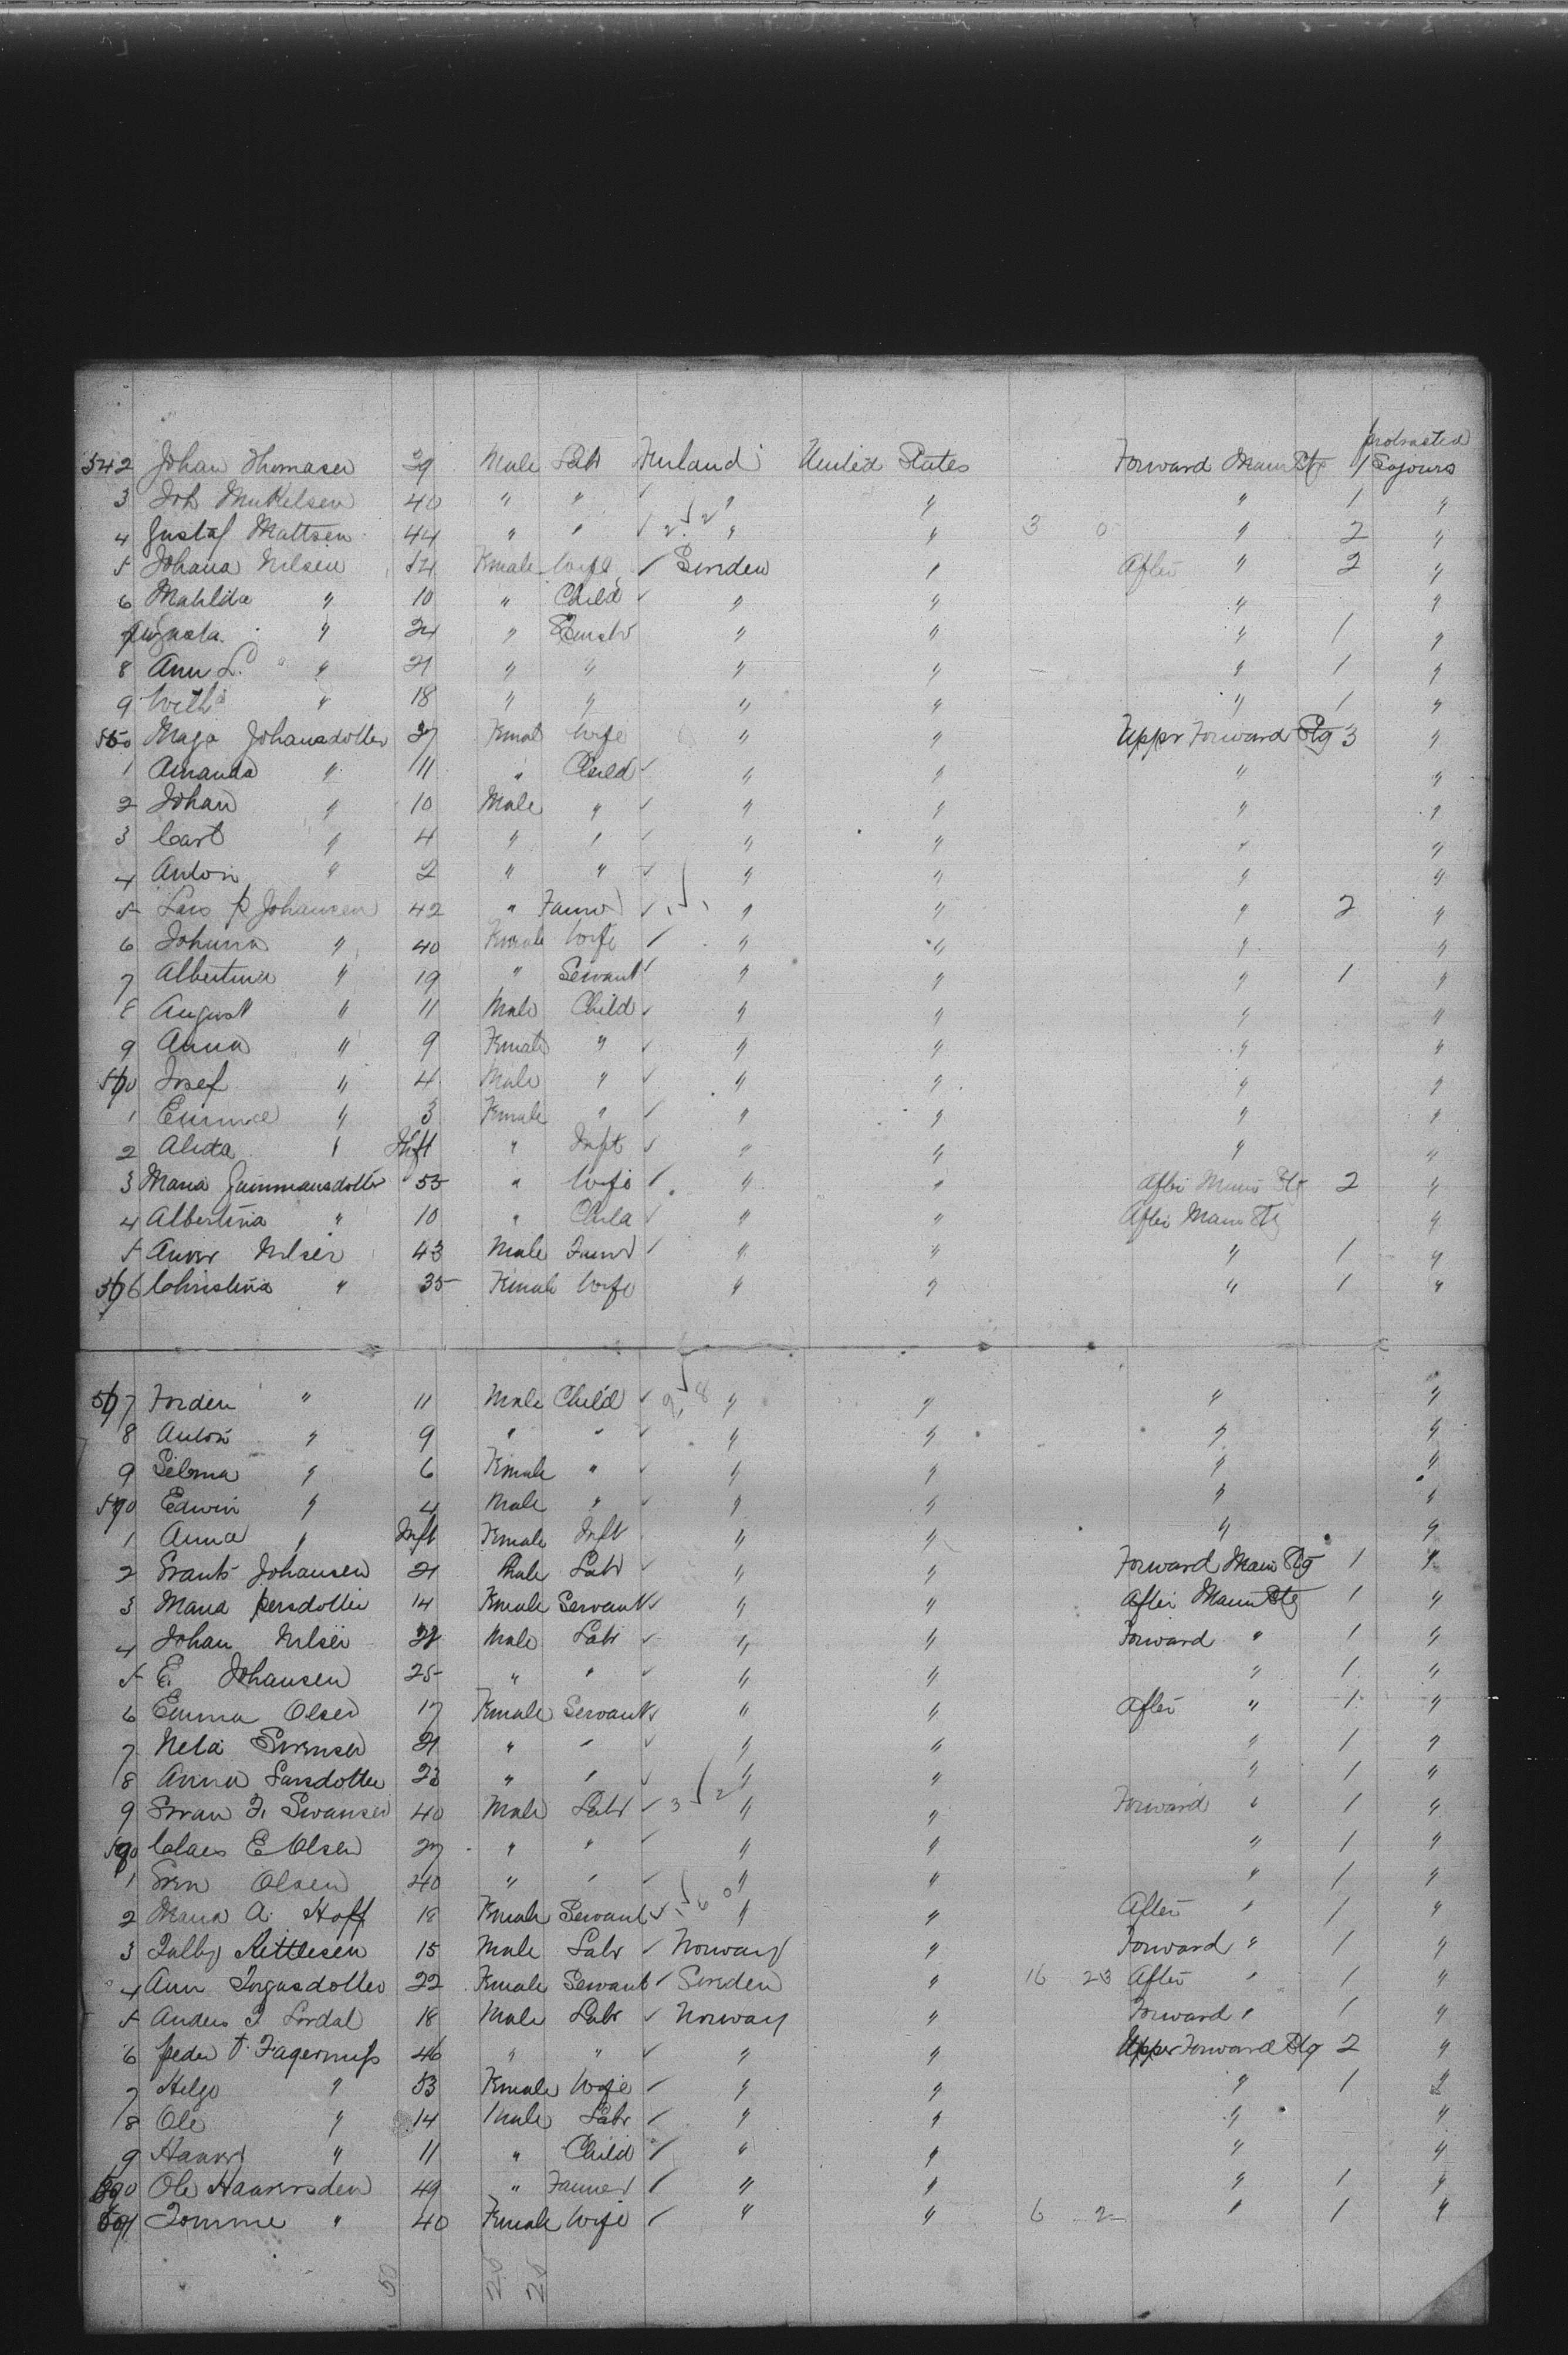 protracted
542 Johan Thomasen 29 Male Labr Finland United States Forward Main Stg 1 Sojours
3 Joh Mukelsen 40 " " " " " 1 "
4 Gustaf Mattsen 44 " " 2 2 " " 3 0 " 2 "
5 Johana Nilsen 54 Female Wife Sweden " After " 2 "
6 Mathilda " 10 " Child " " " "
7 Augusta " 24 " " " " 1 "
8 Ann L. " 21 " " " " " 1 "
9 Wilh " 18 " " " " " 1 "
550 Maja Johansdotter 37 Female Wife " " Upper Forward Stg 3 "
1 Amanda " 11 " Child " " " "
2 Johan " 10 Male " " " " "
3 Carl " 4 " " " " " "
4 Anton " 2 " " " " " "
5 Lars P Johansen 42 " Farmr 1 1 " " " 2 "
6 Johana " 40 Female Wife " " " "
7 Albertina " 19 " Servant " " " 1 "
8 August " 11 Male Child " " " "
9 Anna " 9 Female " " " " "
560 Josef " 4 Male " " " " "
1 Emma " 3 Female " " " " "
2 Alida " Inft " Inft " " " "
3 Maria Gummansdotter 55 " Wife " " After Main Stg 2 "
4 Albertina " 10 " Child " " After Main Stg "
5 Anver Nilsen 43 Male Farmr " " " 1 "
566 Christina " 35 Female Wife " " " 1 "
567 Jorden " 11 Male Child 2 8 " " " "
8 Anton " 9 " " " " " "
9 Selma " 6 Female " " " " "
570 Edwin " 4 Male " " " " "
1 Anna " Inft Female Inft " " " "
2 Frants Johansen 21 Male Labr " " Forward Main Stg 1 "
3 Maria Persdotter 14 Female Servant " " After Main Stg 1 "
4 Johan Nilsen Male Labr " " Forward " 1 "
5 E. Johansen 25 " " " " " 1 "
6 Emma Olsen 17 Female Servant " " After " 1 "
7 Nela Svensen 21 " " " " " 1 "
8 Anna Larsdotter 23 " " " " " 1 "
9 Swan F. Swansen 40 Male Labr 3 2 " " Forward " 1 "
580 Claes E Olsen 27 " " " " " 1 "
1 Sven Olsen 40 " " " " " 1 "
2 Maria A. Hoff 18 Female Servant 1 6 0 " " After " 1 "
3 Talby Kittlesen 15 Male Labr Norway " Forward " 1 "
4 Ann Torgusdotter 22 Female Servant Sweden " 16 23 After " 1 "
5 Anders T Lordal 18 Male Labr Norway " Forward " 1 "
6 Peder T. Fagernes 46 " " " " Upper Forward Stg 2 "
7 Helge " 53 Female Wife " " " 1 "
8 Ole " 14 Male Labr " " " "
9 Haaver " 11 " Child " " " "
590 Ole Haaversden 49 " Farmer " " " 1 "
591 Tomine " 40 Female Wife " " 6 2 " 1 "
50 26 26